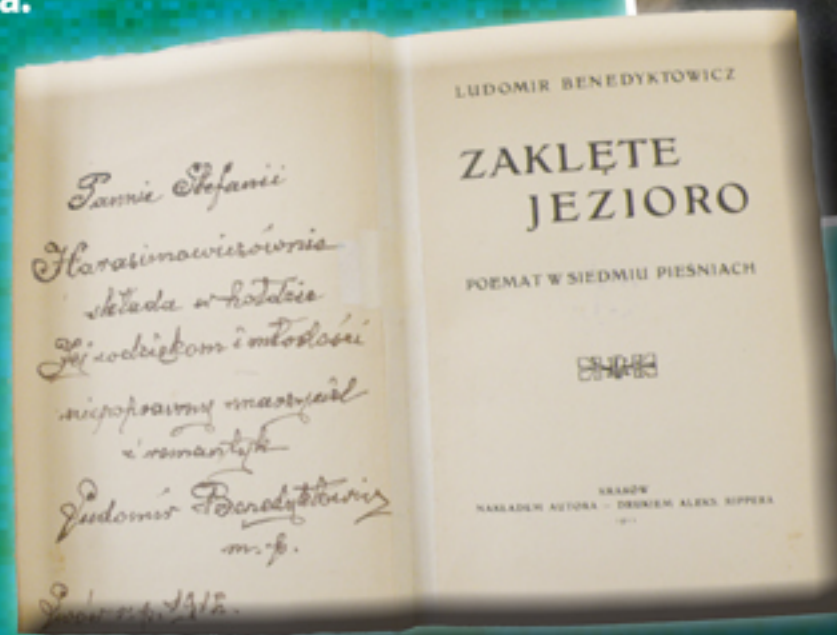 a.
Pannie Stefanii
Harasimowiczównie
składa w hołdzie
Jej wdziękom i młodości
niepoprawny marzyciel
i romantyk
Ludomir Benedyktowicz
m.p.
Lwów r.p. 1912.
LUDOMIR BENEDYKTOWICZ
ZAKLĘTE
JEZIORO
POEMAT W SIEDMIU PIEŚNIACH
KRAKÓW
NAKŁADEM AUTORA — DRUKIEM ALEKS. RIPPERA